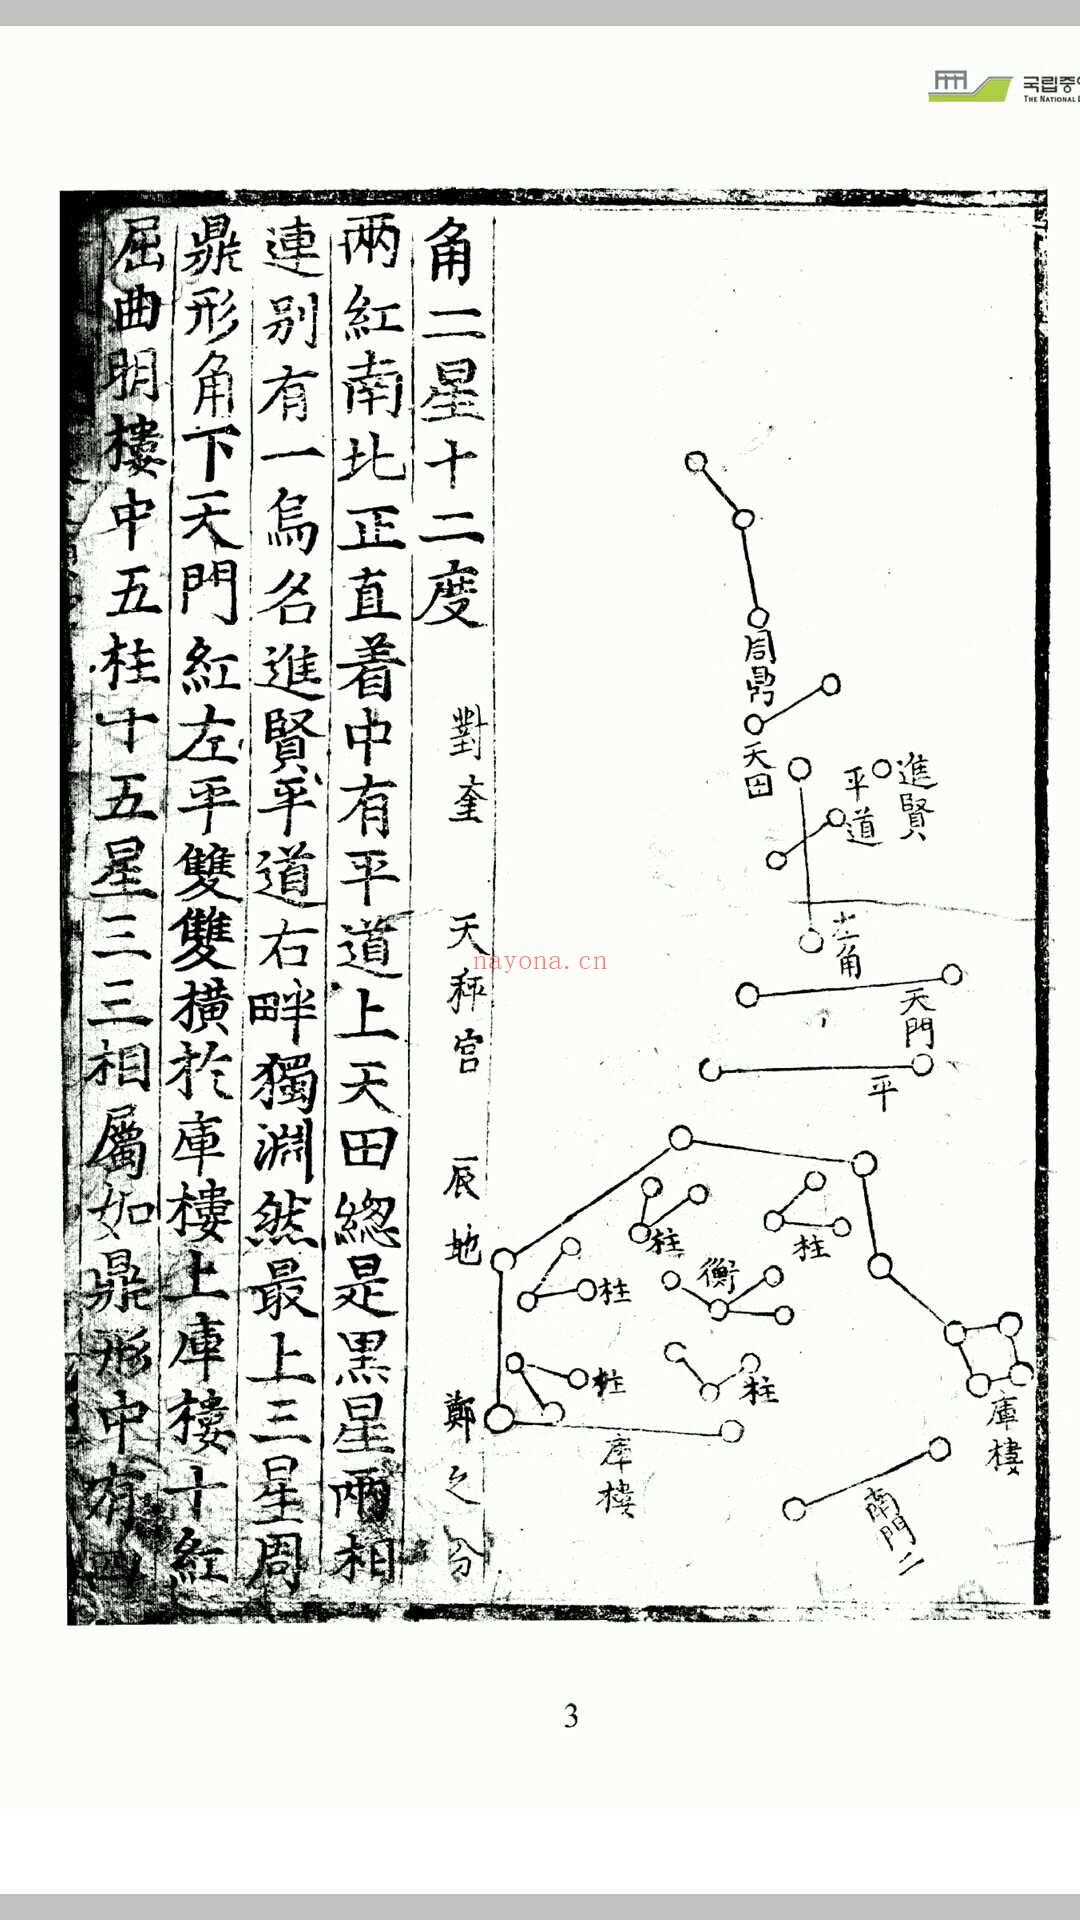 국립중
THE NATIONAL
角二星十二度 對奎 天秤宮 辰地 鄭之分
兩紅南北正直着中有平道上天田緫是黒星兩相
連别有一烏名進賢平道右畔獨淵然最上三星周
鼎形角下天門紅左平雙雙橫於庫樓上庫樓十紅
屈曲明樓中五柱十五星三三相屬如鼎形中有四
周鼎
天田
進賢
平道
左角
天門
平
柱
柱
衡
柱
柱
柱
庫樓
庫樓
南門二
nayona.cn
3